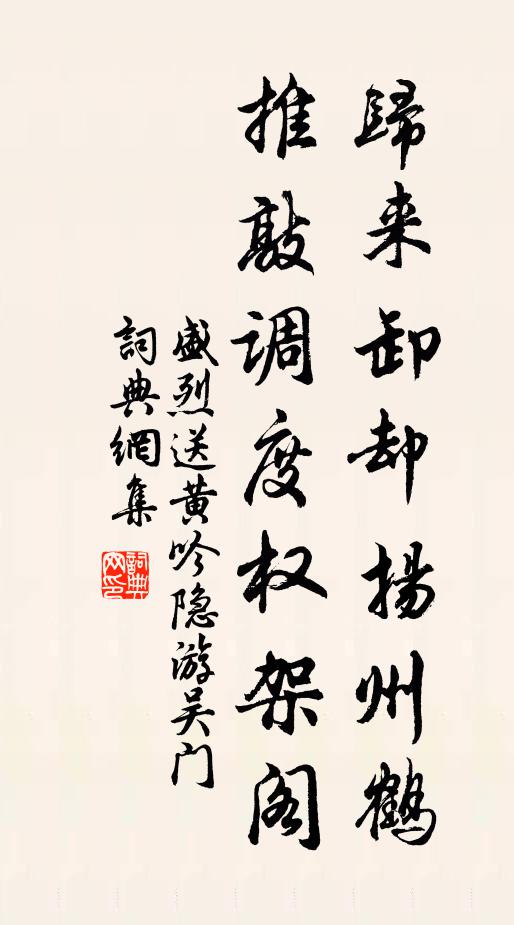 歸来卸却揚州鶴
推敲调度权架阁
盛烈送黄吟隐游吴门
詞典網集
詞典